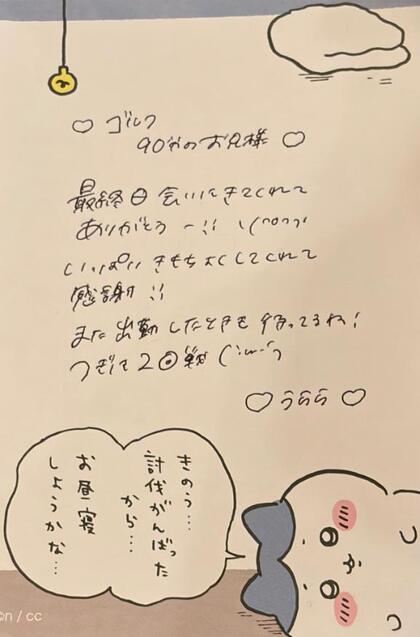 ♡ ゴルフ
90分のお兄様 ♡
最終日会いにきてくれて
ありがとう ー!!
いっぱいきもちよくしてくれて
感謝 !!
また出勤したときも待ってるね!
つぎは2回戦
♡ うらら ♡
きのう…
討伐がんばった
から…
お昼寝
しようかな…
n / cc